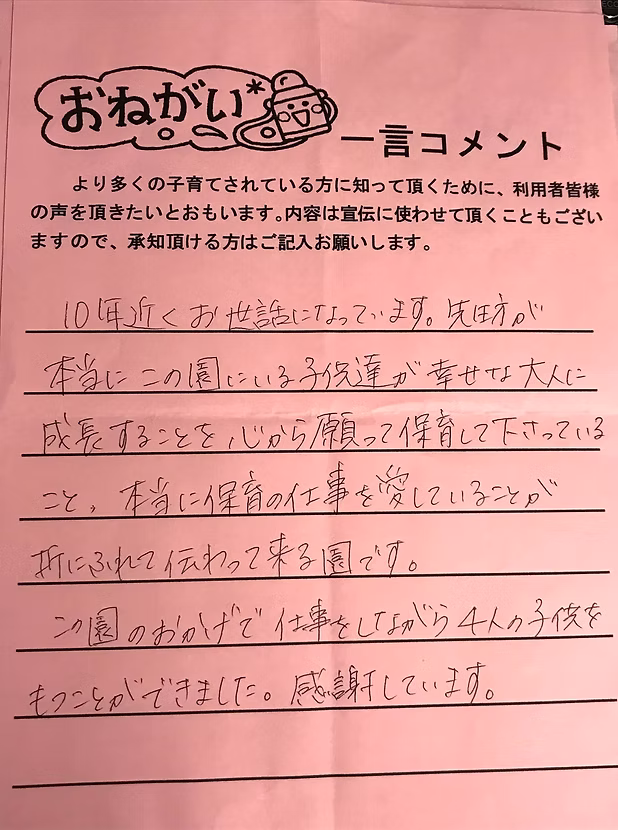 おねがい*
一言コメント
より多くの子育てされている方に知って頂くために、利用者皆様
の声を頂きたいとおもいます。内容は宣伝に使わせて頂くこともござい
ますので、承知頂ける方はご記入お願いします。
10年近くお世話になっています。先生方が
本当にこの園にいる子供達が幸せな大人に
成長することを心から願って保育して下さっている
こと、本当に保育の仕事を愛していることが
折にふれて伝わって来る園です。
この園のおかげで仕事をしながら4人の子供を
もつことができました。感謝しています。